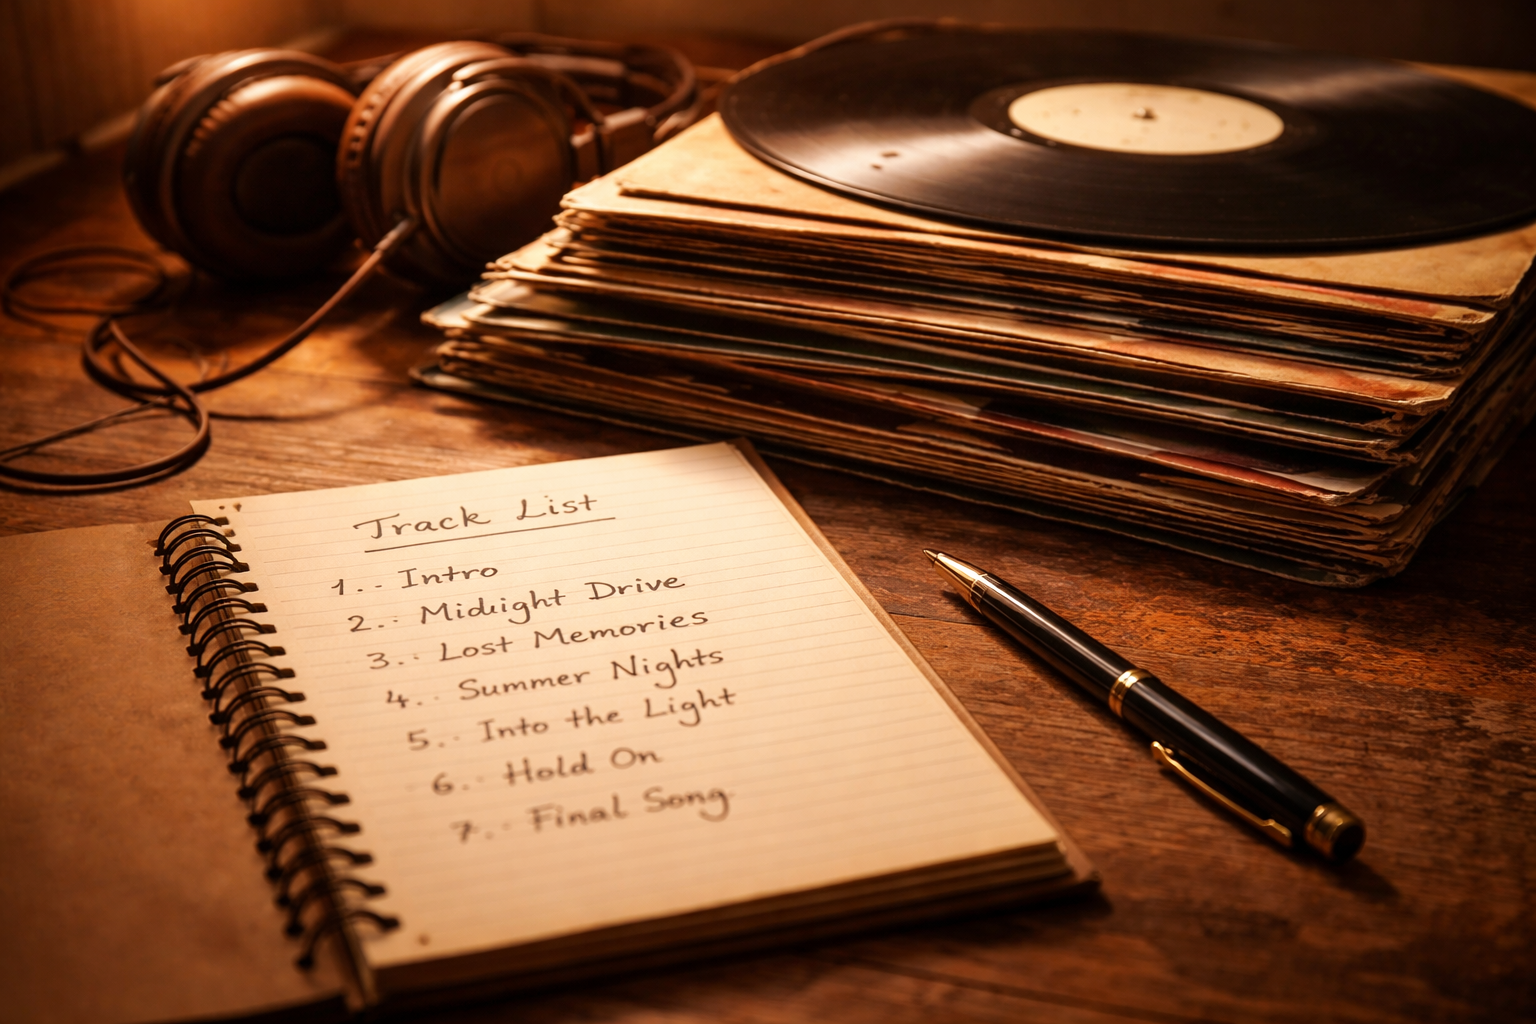 Track List
1.. Intro
2.. Midnight Drive
3.. Lost Memories
4.. Summer Nights
5.. Into the Light
6.. Hold On
7.. Final Song